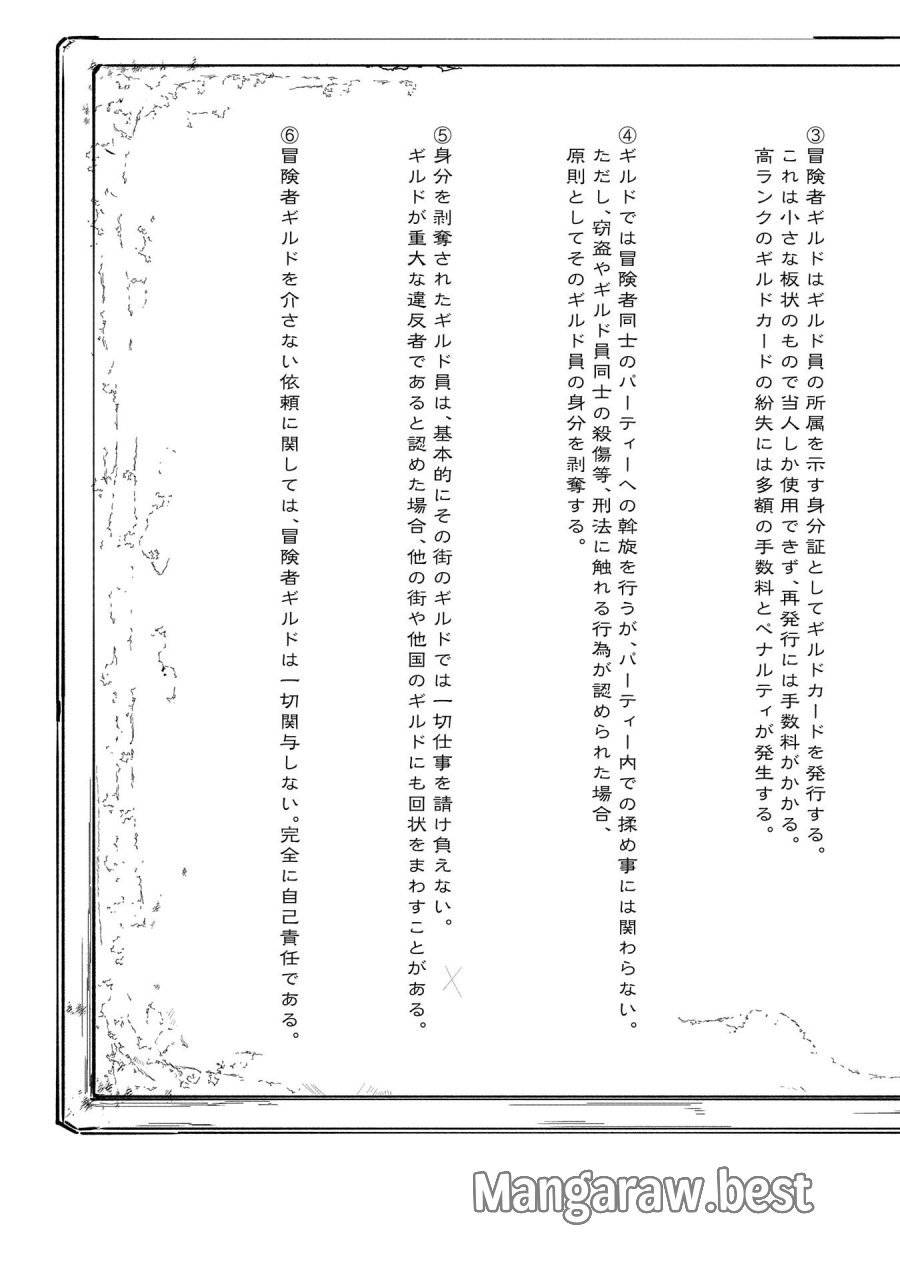 ③冒険者ギルドはギルド員の所属を示す身分証としてギルドカードを発行する。
これは小さな板状のもので当人しか使用できず、再発行には手数料がかかる。
高ランクのギルドカードの紛失には多額の手数料とペナルティが発生する。
④ギルドでは冒険者同士のパーティーへの斡旋を行うが、パーティー内での揉め事には関わらない。
ただし、窃盗やギルド員同士の殺傷等、刑法に触れる行為が認められた場合、
原則としてそのギルド員の身分を剥奪する。
⑤身分を剥奪されたギルド員は、基本的にその街のギルドでは一切仕事を請け負えない。
ギルドが重大な違反者であると認めた場合、他の街や他国のギルドにも回状をまわすことがある。
⑥冒険者ギルドを介さない依頼に関しては、冒険者ギルドは一切関与しない。完全に自己責任である。
Mangaraw.best